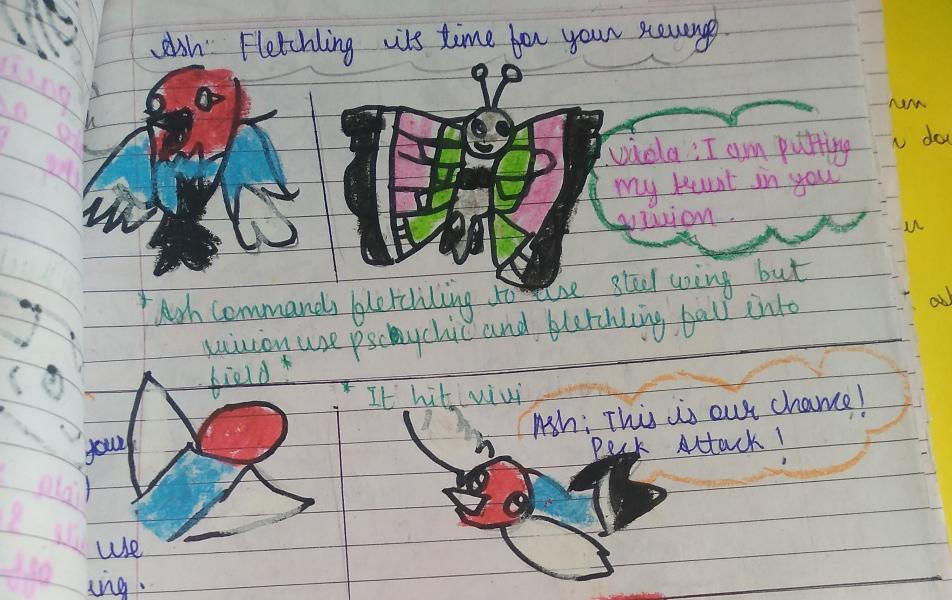 Ash: Fletchling its time for your reveng.
Viola: I am putting
my trust in you
vivion.
*Ash commands fletchling to use steel wing but
vivion use pscychic and fletchling fall into
field*
* It hit vivi
Ash: This is our chance!
Peck Attack!
your
use
ing.